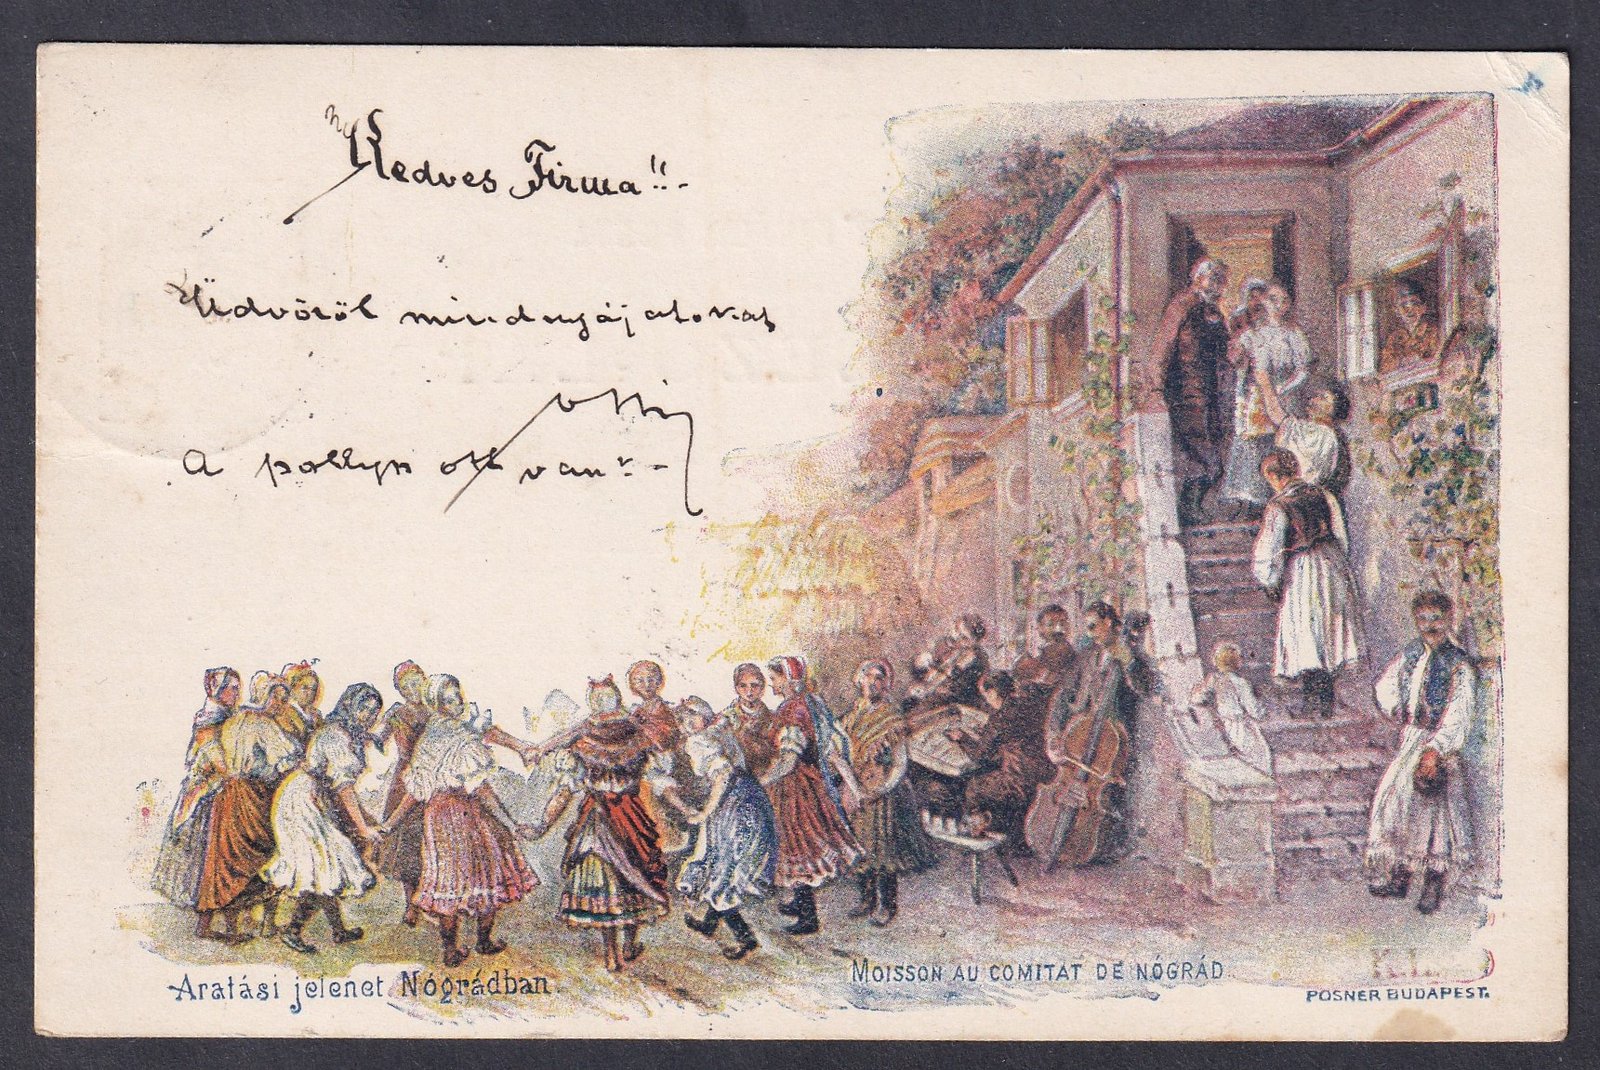 Kedves Firma!!.-
Üdvözöl mindnyájatokat
A pollyp ott van.-
Aratási jelenet Nógrádban.
MOISSON AU COMITAT DE NÓGRÁD.
POSNER BUDAPEST.